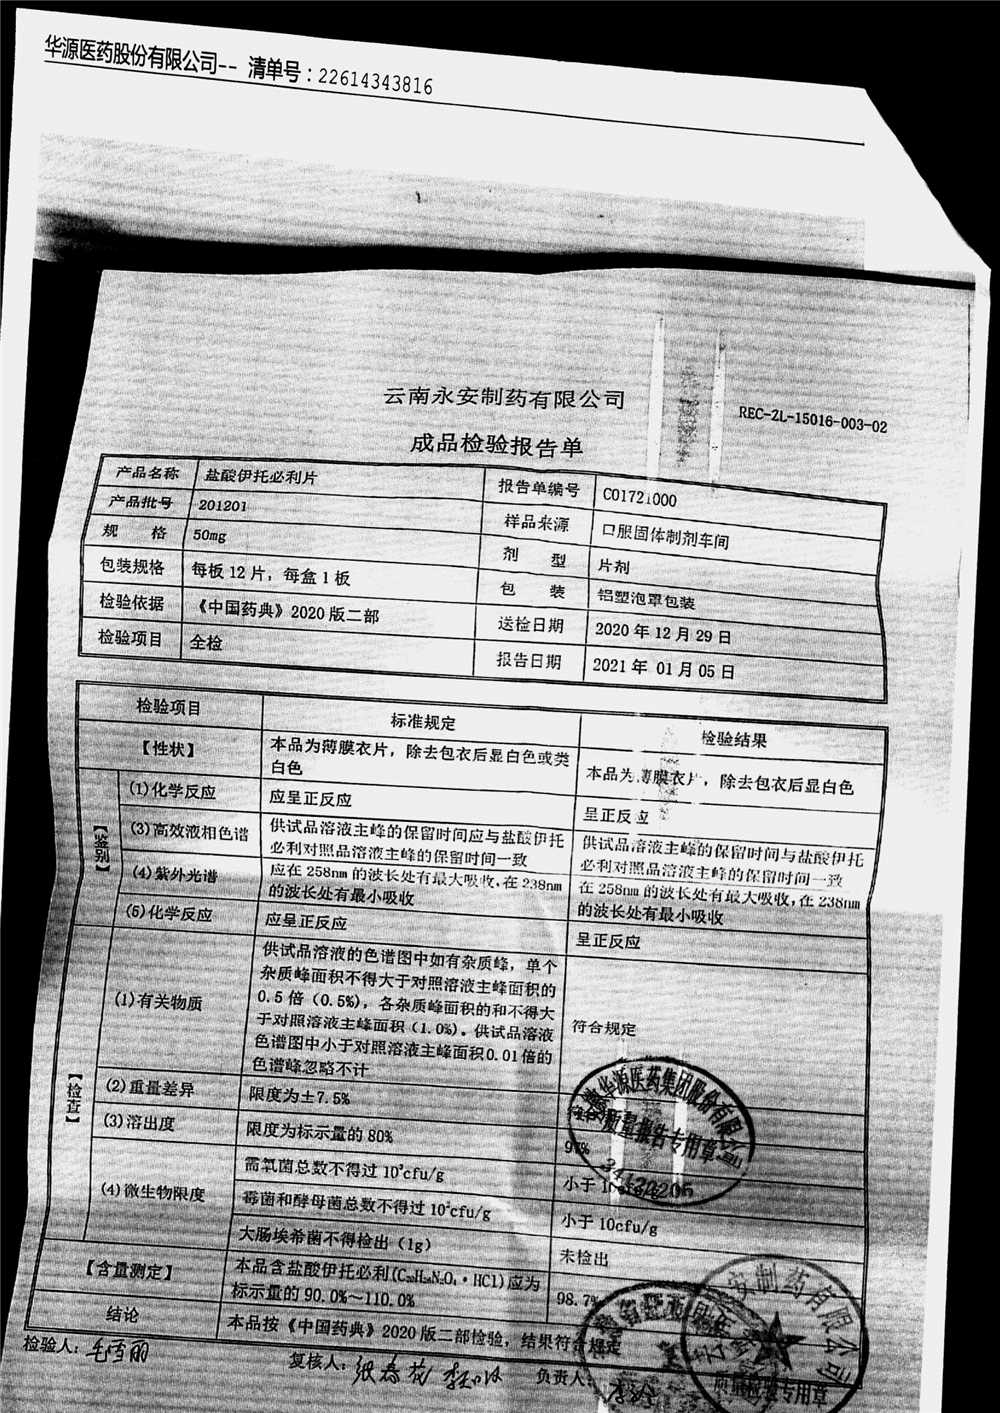 华源医药股份有限公司-- 清单号：22614343816
云南永安制药有限公司
REC-ZL-15016-003-02
成品检验报告单
产品名称 盐酸伊托必利片 报告单编号 C01721000
产品批号 201201 样品来源 口服固体制剂车间
规 格 50mg 剂 型 片剂
包装规格 每板12片，每盒1板 包 装 铝塑泡罩包装
检验依据 《中国药典》2020版二部 送检日期 2020年12月29日
检验项目 全检 报告日期 2021年 01月05日
检验项目 标准规定 检验结果
【性状】 本品为薄膜衣片，除去包衣后显白色或类
白色
本品为薄膜衣片，除去包衣后显白色
【鉴别】
(1)化学反应 应呈正反应 呈正反应
(3)高效液相色谱 供试品溶液主峰的保留时间应与盐酸伊托
必利对照品溶液主峰的保留时间一致
供试品溶液主峰的保留时间与盐酸伊托
必利对照品溶液主峰的保留时间一致
(4)紫外光谱 应在258nm的波长处有最大吸收,在238nm
的波长处有最小吸收
在258nm的波长处有最大吸收,在238nm
的波长处有最小吸收
(5)化学反应 应呈正反应 呈正反应
【检查】
(1)有关物质 供试品溶液的色谱图中如有杂质峰，单个
杂质峰面积不得大于对照溶液主峰面积的
0.5倍（0.5%），各杂质峰面积的和不得大
于对照溶液主峰面积（1.0%）。供试品溶液
色谱图中小于对照溶液主峰面积0.01倍的
色谱峰忽略不计
符合规定
(2)重量差异 限度为±7.5%
(3)溶出度 限度为标示量的80% 97%
(4)微生物限度 需氧菌总数不得过10³cfu/g 小于10cfu/g
霉菌和酵母菌总数不得过10²cfu/g 小于10cfu/g
大肠埃希菌不得检出（1g） 未检出
【含量测定】 本品含盐酸伊托必利(C₂₀H₂₆N₂O₄·HCl)应为
标示量的90.0%～110.0%
98.7%
结论 本品按《中国药典》2020版二部检验，结果符合规定
检验人： 毛雪丽 复核人： 张春花 负责人：
华源医药集团股份有限公司
质量报告专用章
安制药有限公司
质量检验专用章